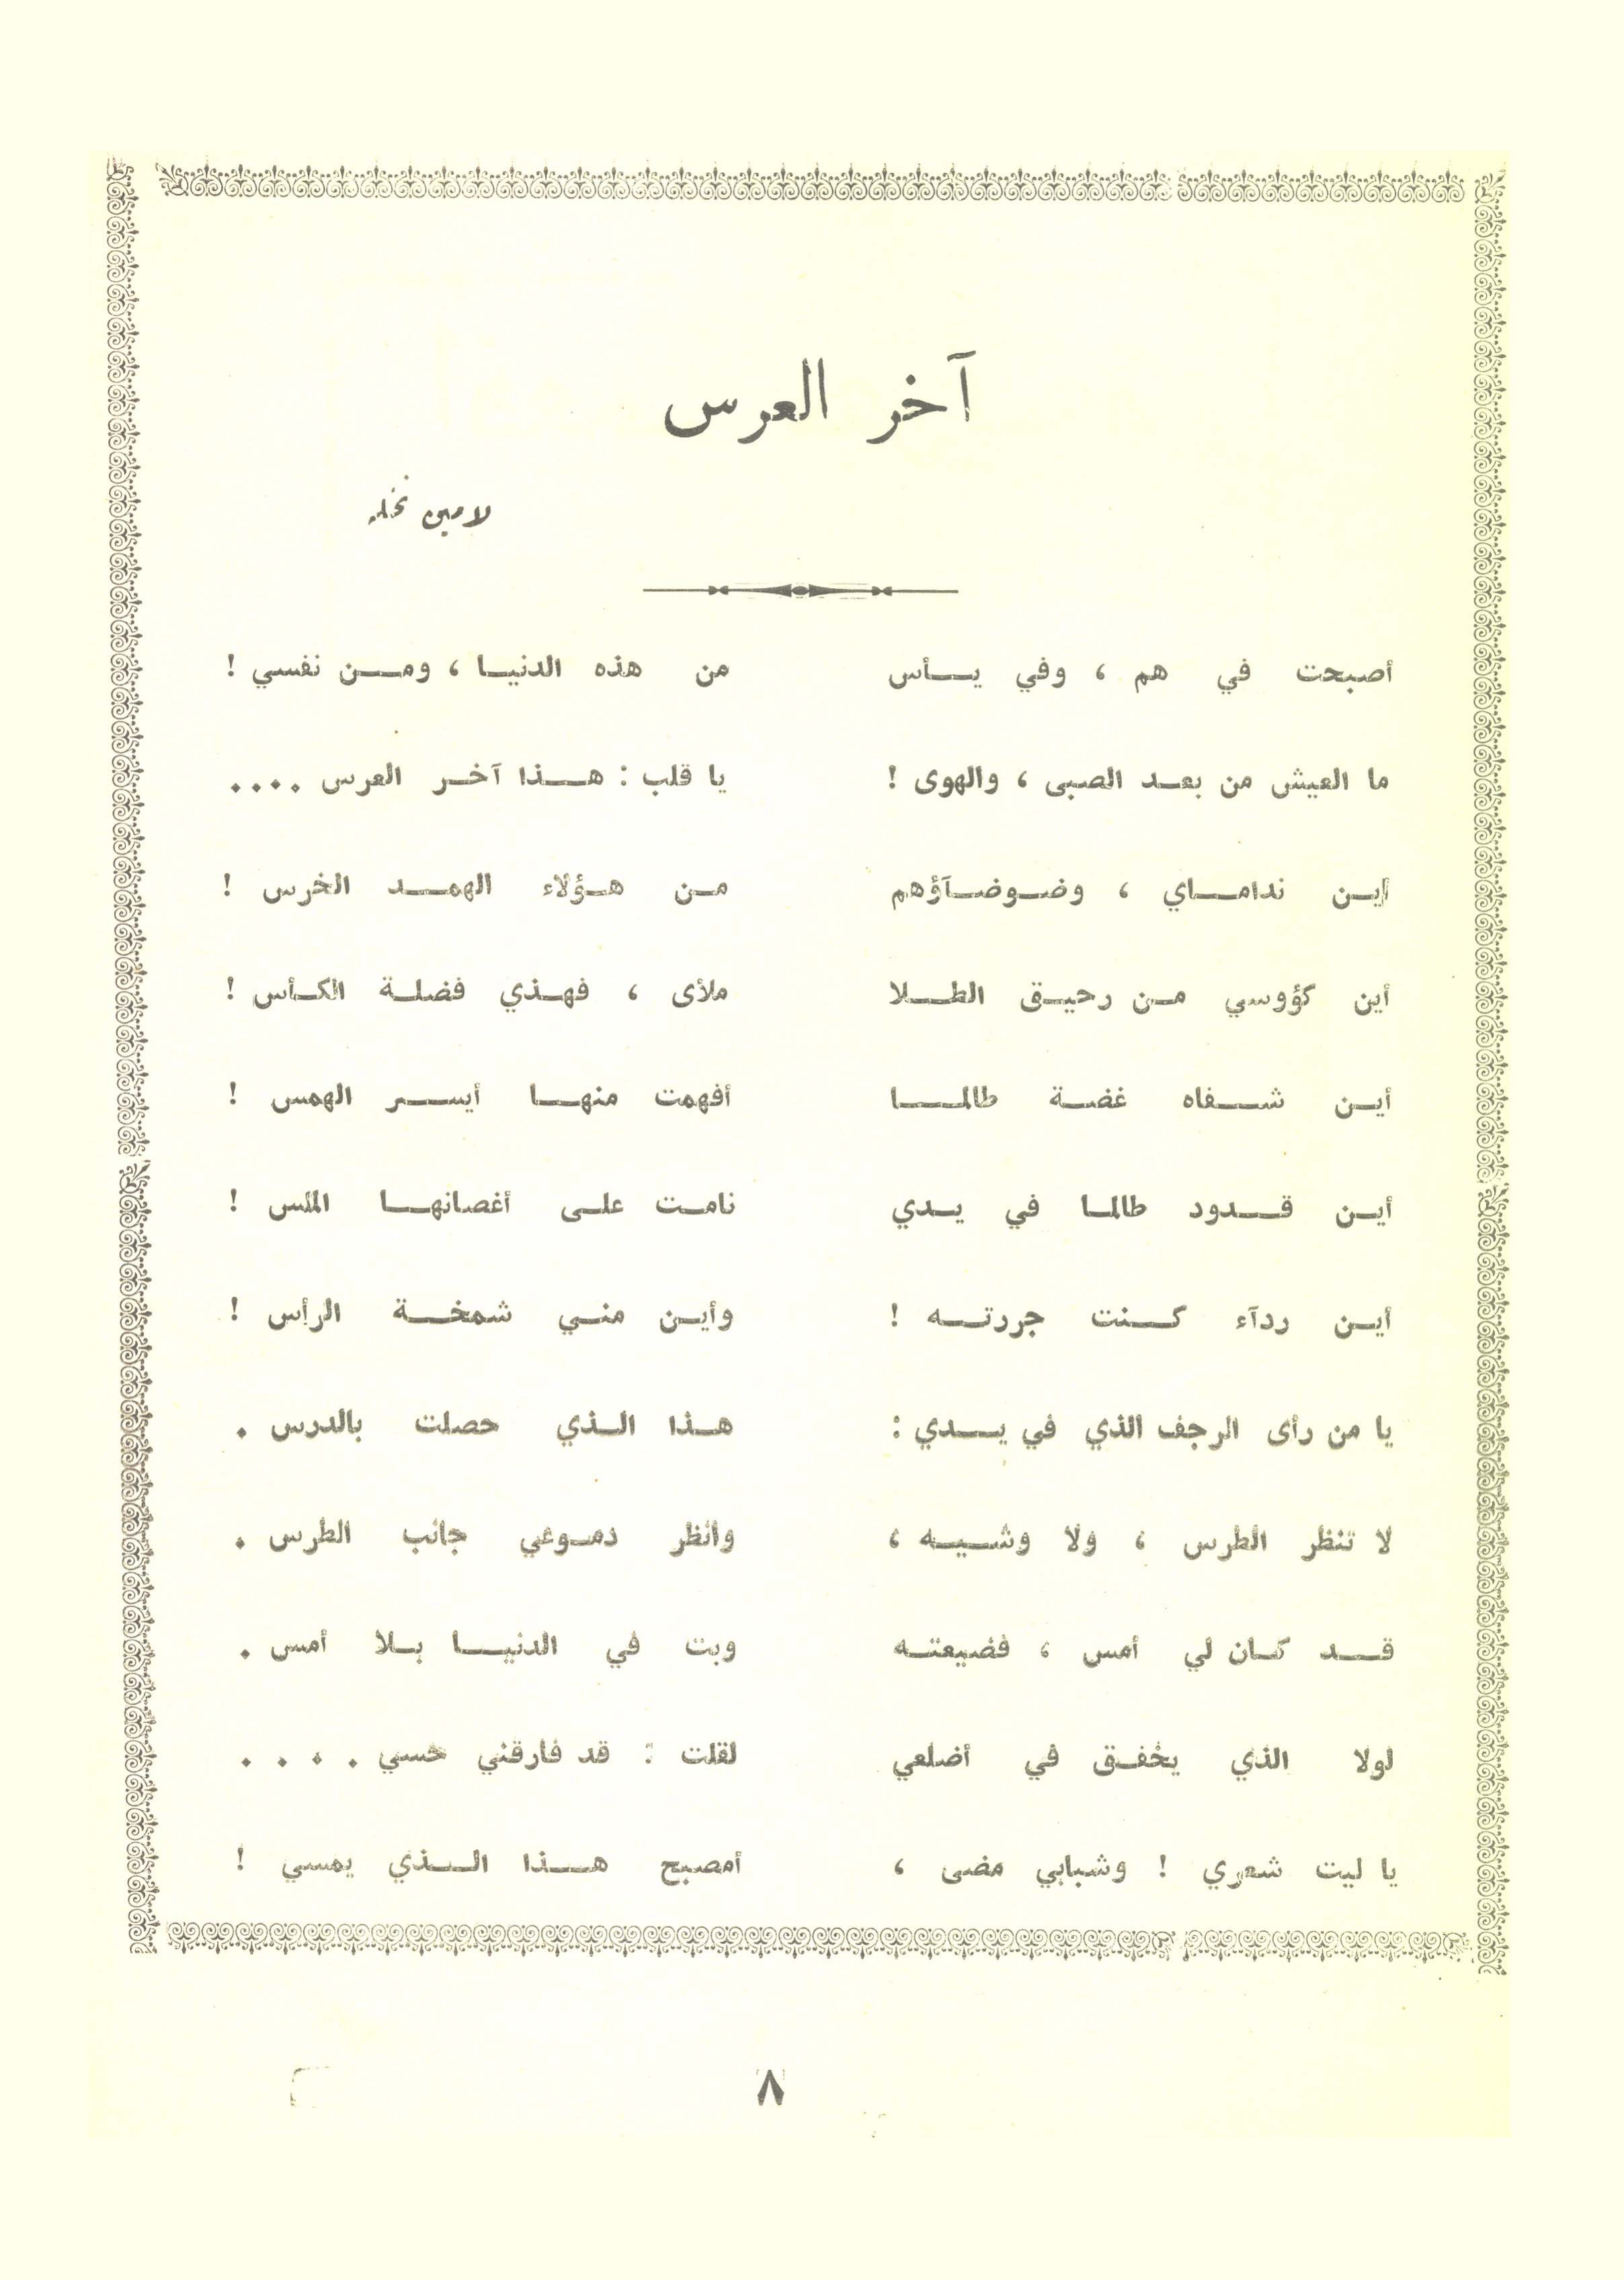 آخر العرس
لامين نخله
أصبحت في هم ، وفي يأس من هذه الدنيا ، ومن نفسي !
ما العيش من بعد الصبى ، والهوى ! يا قلب : هذا آخر العرس ....
أين ندامـاي ، وضوضآؤهم من هؤلاء الهمد الخرس !
أين كؤوسي من رحيق الطلا ملأى ، فهذي فضلة الكأس !
أين شفاه غضة طالما أفهمت منها أيسر الهمس !
أين قدود طالما في يدي نامت على أغصانها الملس !
أين ردآء كنت جررته ! وأين مني شمخة الرأس !
يا من رأى الرجف الذي في يدي : هذا الذي حصلت بالدرس .
لا تنظر الطرس ، ولا وشيه ، وانظر دموعي جانب الطرس .
قد كان لي أمس ، فضيعته وبت في الدنيا بلا أمس .
لولا الذي يخفق في أضلعي لقلت : قد فارقني حسي . . . .
يا ليت شعري ! وشبابي مضى ، أمصبح هذا الذي يمسي !
٨